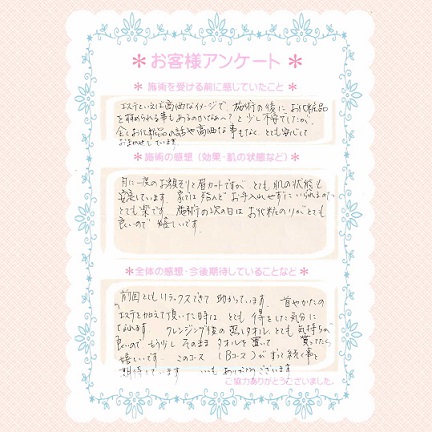 ＊お客様アンケート＊
＊施術を受ける前に感じていたこと＊
エステといえば高価なイメージで 施術の後に お化粧品
を勧められる事もあるのかなぁ…？と少し不安でしたが
全くお化粧品の話や高価な事もなく とても安心して
おまかせしています
＊施術の感想（効果・肌の状態など）＊
月に一度のお顔そりと眉カットですが とても 肌の状態も
安定しています 家では殆んど お手入れせずに いられるので
とても楽です 施術の次の日は お化粧のりがとても
良いので 嬉しいです
＊全体の感想・今後期待していることなど＊
前回とてもリラックスできて 助かっています 首やかたの
エステを加えて頂いた時は とても 得をした気分に
なります クレンジング後の 蒸しタオル とても 気持ちが
良いので もう少し そのまま タオルを置いて 貰ってたら
嬉しいです このコース （Bコース）が ずっと続く事を
期待しています いつも ありがとうございます
ご協力ありがとうございました。